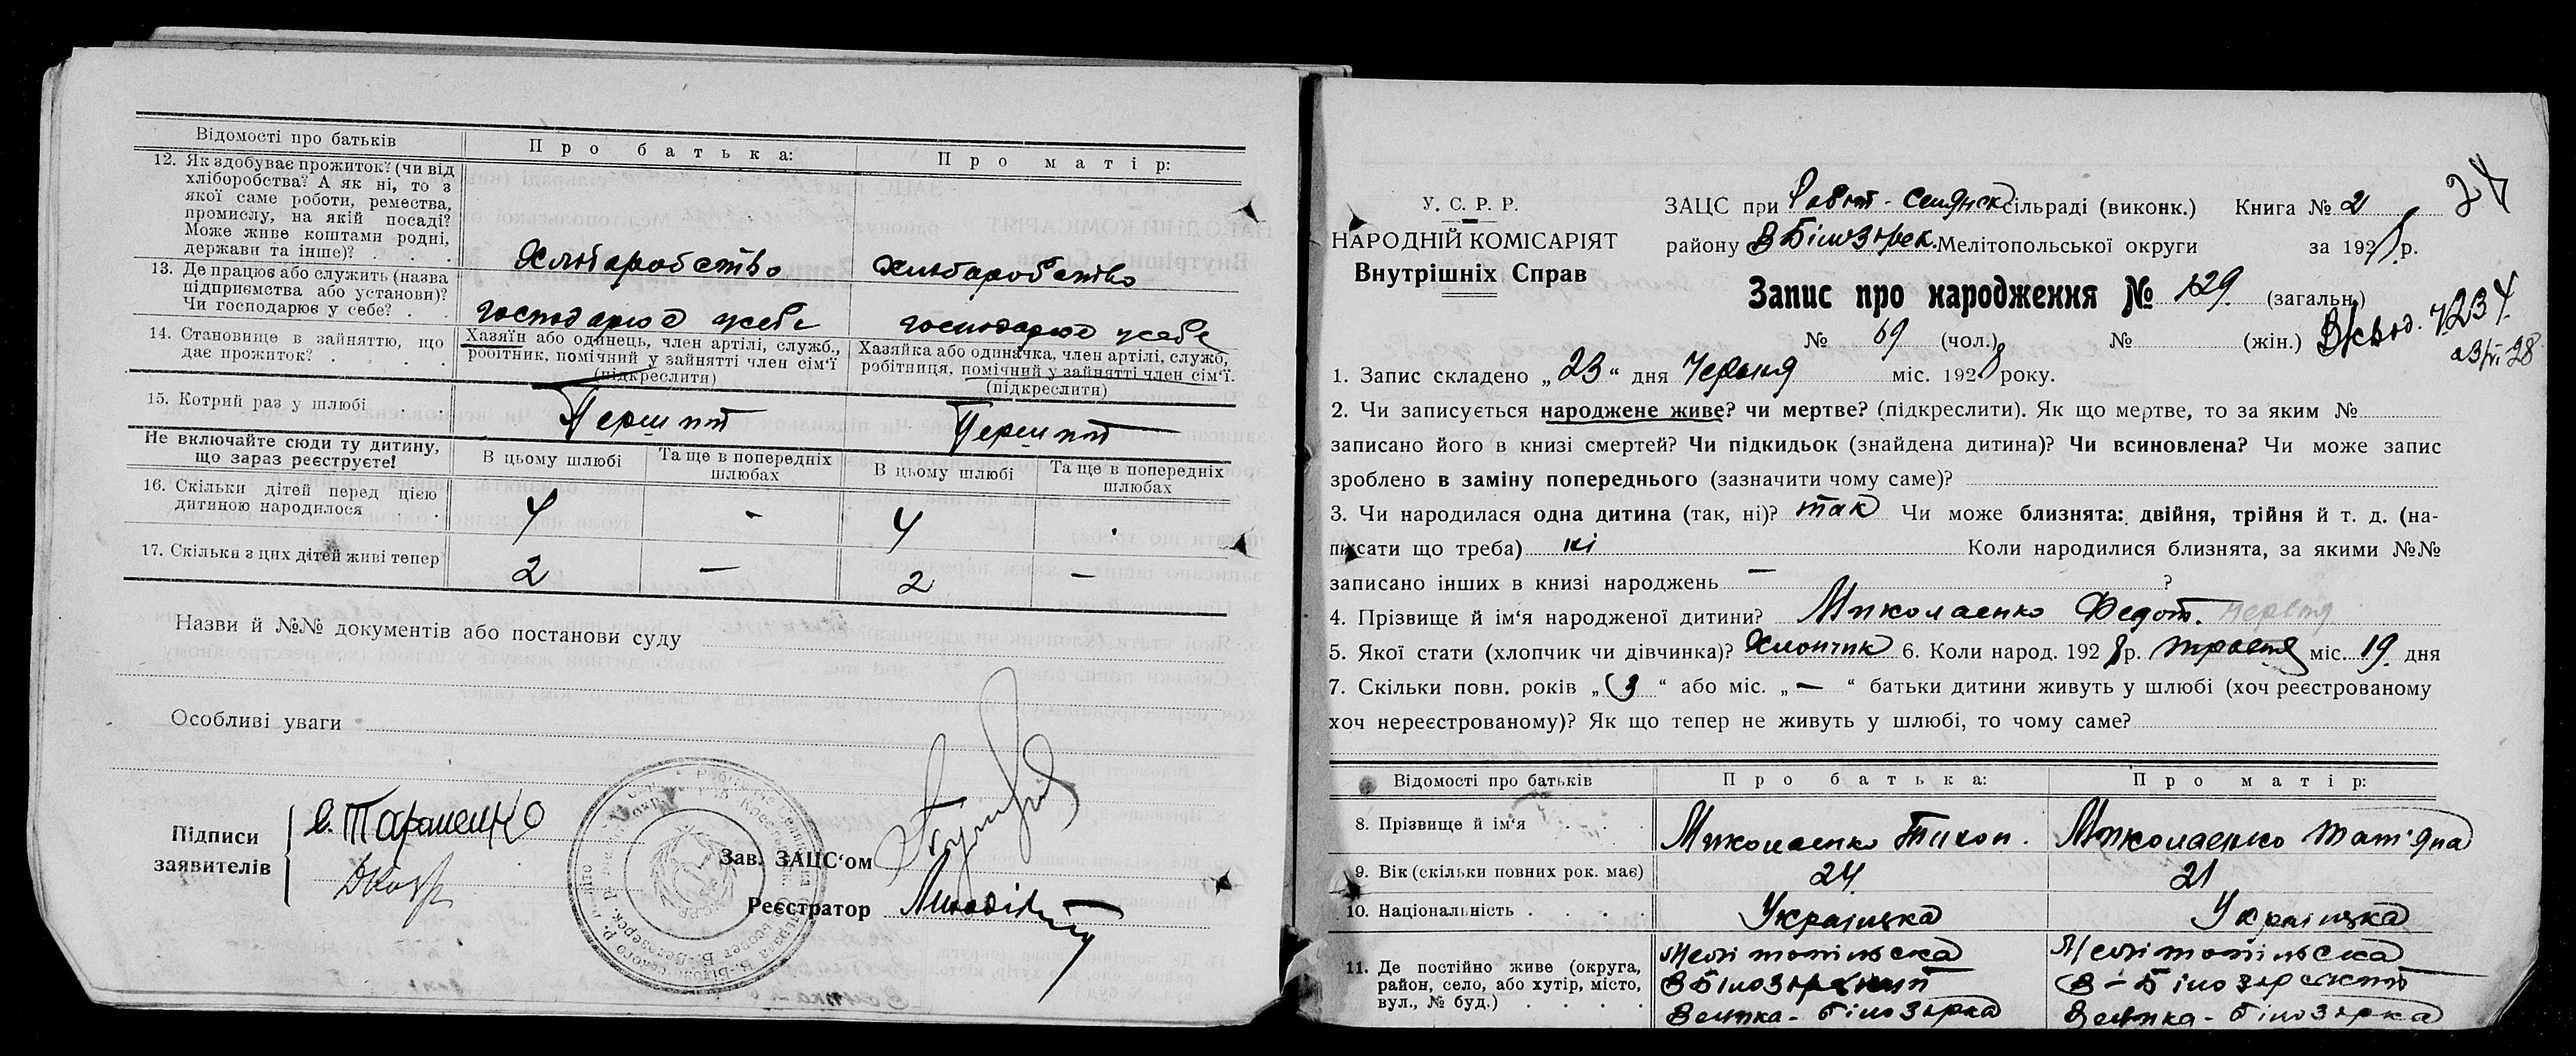 Відомості про батьків
Про батька:
Про матір:
12. Як здобуває прожиток? (чи від хліборобства? А як ні, то з якої саме роботи, ремества, промислу, на якій посаді? Може живе коштами родні, держави та інше)? . . .
Хліборобство
Хліборобство
13. Де працює або служить (назва підприємства або установи)? Чи господарює у себе? . .
господарює усебе
господарює усебе
14. Становище в зайняттю, що дає прожиток? . . . .
Хазяїн або одинець, член артілі, служб., робітник, помічний у зайнятті член сім'ї (підкреслити)
Хазяйка або одиначка, член артілі, служб, робітниця, помічний у зайнятті член сім'ї. (підкреслити)
15. Котрий раз у шлюбі . .
Перший
Перший
Не включайте сюди ту дитину, що зараз реєструєте!
В цьому шлюбі
Та ще в попередніх шлюбах
В цьому шлюбі
Та ще в попередніх шлюбах
16. Скільки дітей перед цією дитиною народилося . .
4 - 4 .
17. Скільки з цих дітей живі тепер
2 — 2 —
Назви й №№ документів або постанови суду
Особливі уваги
Підписи заявителів
Тараненко
Зав. ЗАЦС'ом
Реєстратор
24
У. С. Р. Р.
НАРОДНІЙ КОМІСАРІЯТ
Внутрішніх Справ
ЗАЦС при Робіт-Селянск сільраді (виконк.) Книга № 2
району В Білозірск. Мелітопольської округи за 1928 р.
Запис про народження № 129 (загальн.)
№ 69 (чол.) № (жін.)
1234
23/VI 28
1. Запис складено „23" дня Червня міс. 1928 року.
2. Чи записується народжене живе? чи мертве? (підкреслити). Як що мертве, то за яким №
записано його в книзі смертей? Чи підкидьок (знайдена дитина)? Чи всиновлена? Чи може запис
зроблено в заміну попереднього (зазначити чому саме)?
3. Чи народилася одна дитина (так, ні)? так Чи може близнята: двійня, трійня й т. д. (на-
писати що треба) ні Коли народилися близнята, за якими №№
записано інших в книзі народжень — ?
4. Прізвище й ім'я народженої дитини? Миколаенко Федот.
5. Якої стати (хлопчик чи дівчинка)? Хлопчик 6. Коли народ. 1928 р. травня міс. 19 дня
7. Скільки повн. років „ “ або міс. „ — “ батьки дитини живуть у шлюбі (хоч реєстрованому
хоч нереєстрованому)? Як що тепер не живуть у шлюбі, то чому саме?
Відомості про батьків
Про батька:
Про матір:
8. Прізвище й ім'я . . .
Миколаенко Тихон.
Миколаенко Тат'яна
9. Вік (скільки повних рок. має)
24
21
10. Національність . . . .
Українська
Українська
11. Де постійно живе (округа, район, село, або хутір, місто, вул., № буд.) . . . .
Мелітопільска
В Білозірский
Велика-Білозірка
Мелітопільска
В-Білозірский
Велика-Білозірка